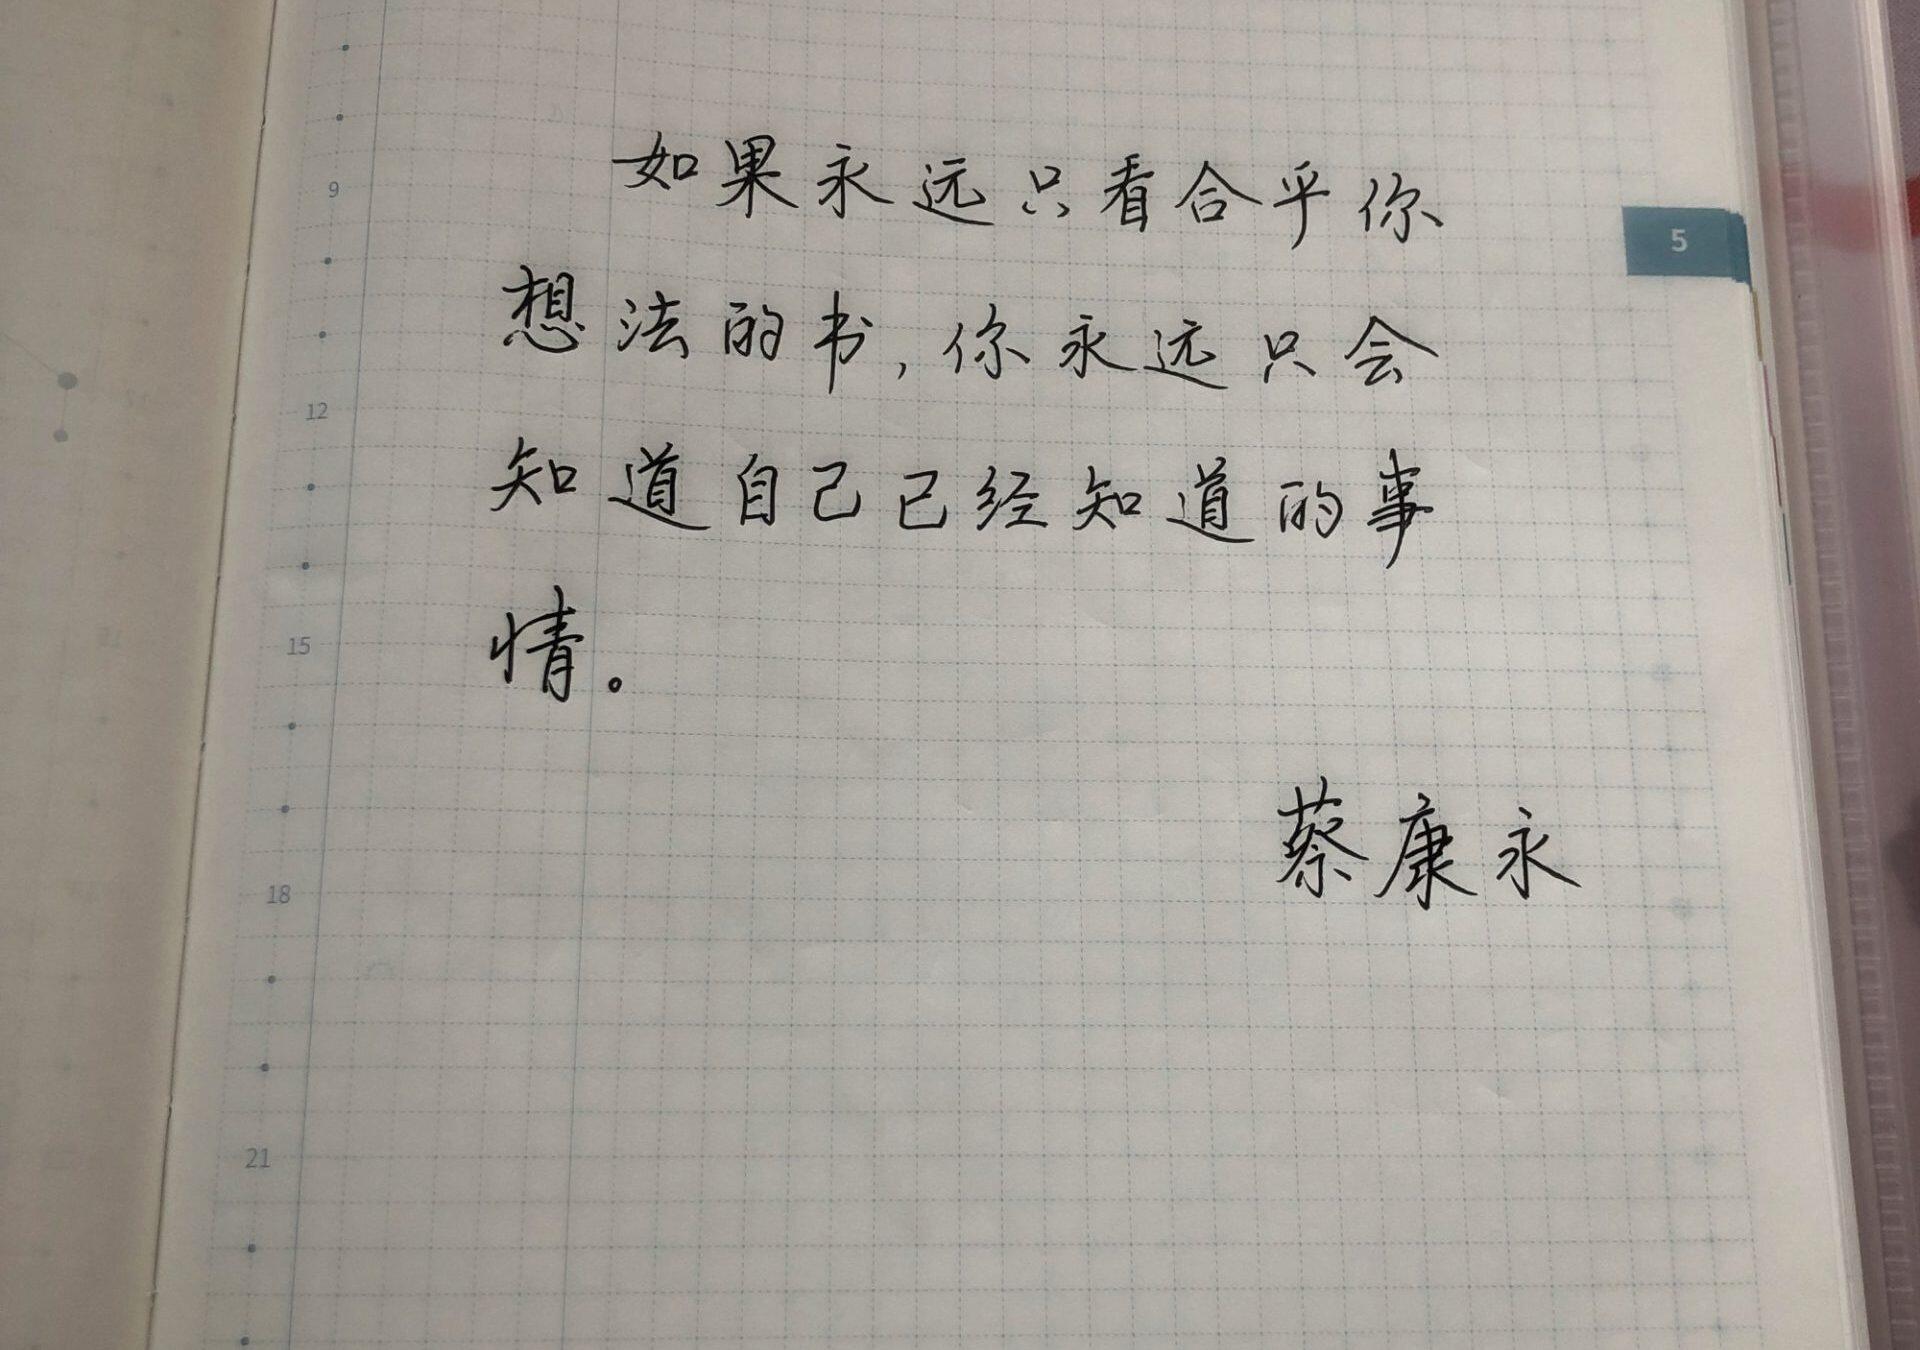 如果永远只看合乎你
5
想法的书，你永远只会
知道自己已经知道的事
情。
蔡康永
9
12
15
18
21